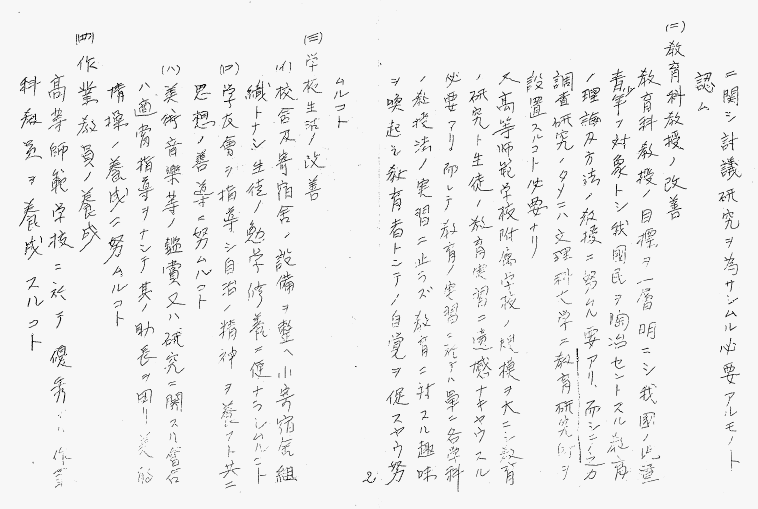 ニ関シ討議研究ヲ為サシムル必要アルモノト
認ム
(二)教育科教授ノ改善
教育科教授ノ目標ヲ一層明ニシ我國ノ
青年ヲ対象トシ我國民ヲ陶冶セントスル教育
ノ理論及方法ノ教授ニ努ムル要アリ、而シテ之カ
調査研究ノタメニハ文理科大学ニ教育研究所ヲ
設置スルコト必要ナリ
又高等師範学校附属学校ノ規模ヲ大ニシ教育
ノ研究ト生徒ノ教育実習ニ遺憾ナキヤウスル
必要アリ而シテ教育ノ実習ニ於テハ單ニ各学科
ノ教授法ノ実習ニ止ラズ教育ニ対スル趣味
ヲ喚起シ教育者トシテノ自覚ヲ促スヤウ努
2
ムルコト
(三)学校生活ノ改善
(イ)校舎及寄宿舎ノ設備ヲ整ヘ小寄宿舎組
織トナシ生徒ノ勉学修養ニ便ナラシムルコト
(ロ)学友會ヲ指導シ自治ノ精神ヲ養フト共ニ
思想ノ善導ニ努ムルコト
(ハ)美術音樂等ノ鑑賞又ハ研究ニ関スル會合
ハ適當指導ヲナシテ其ノ助長ヲ図リ美的
情操ノ養成ニ努ムルコト
(四)作業教員ノ養成
高等師範学校ニ於テ優秀ナル作業
科教員ヲ養成スルコト